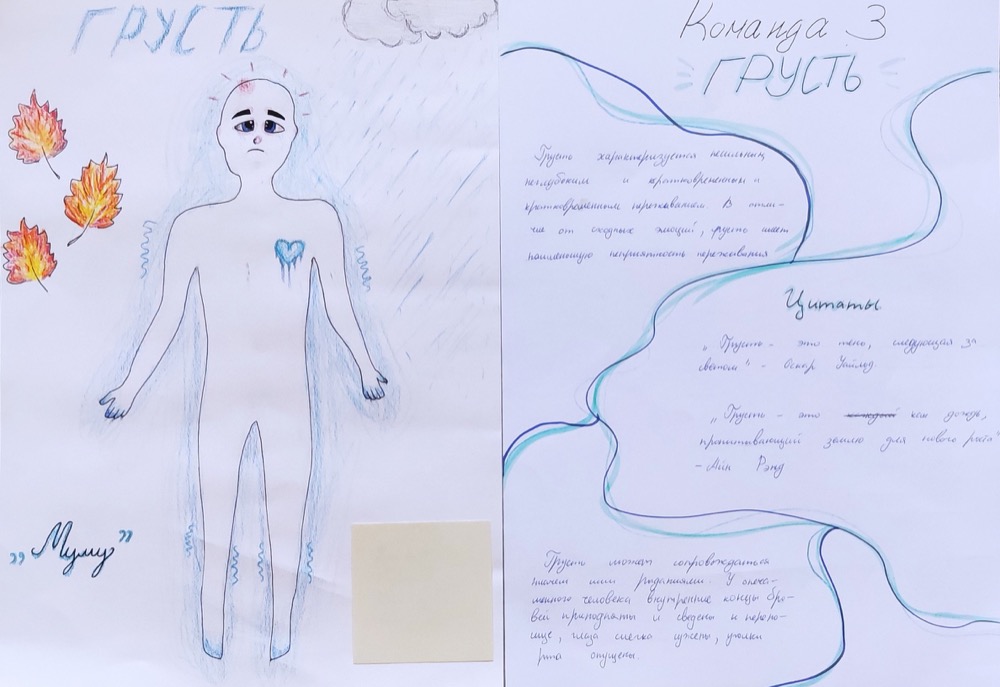 ГРУСТЬ
„Муму”
Команда 3
ГРУСТЬ
Грусть характеризуется несильным
неглубоким и кратковременным и
кратковременным переживанием. В отли-
чие от сходных эмоций, грусть имеет
наименьшую неприятность переживания
Цитаты
„Грусть - это тень, следующая за
светом" - Оскар Уайльд
„Грусть - это как дождь,
пропитывающий землю для нового роста"
- Айн Рэнд
Грусть может сопровождаться
плачем или рыданиями. У опеча-
ленного человека внутренние концы бро-
вей приподняты и сведены к перено-
сице, глаза слегка сужены, уголки
рта опущены.